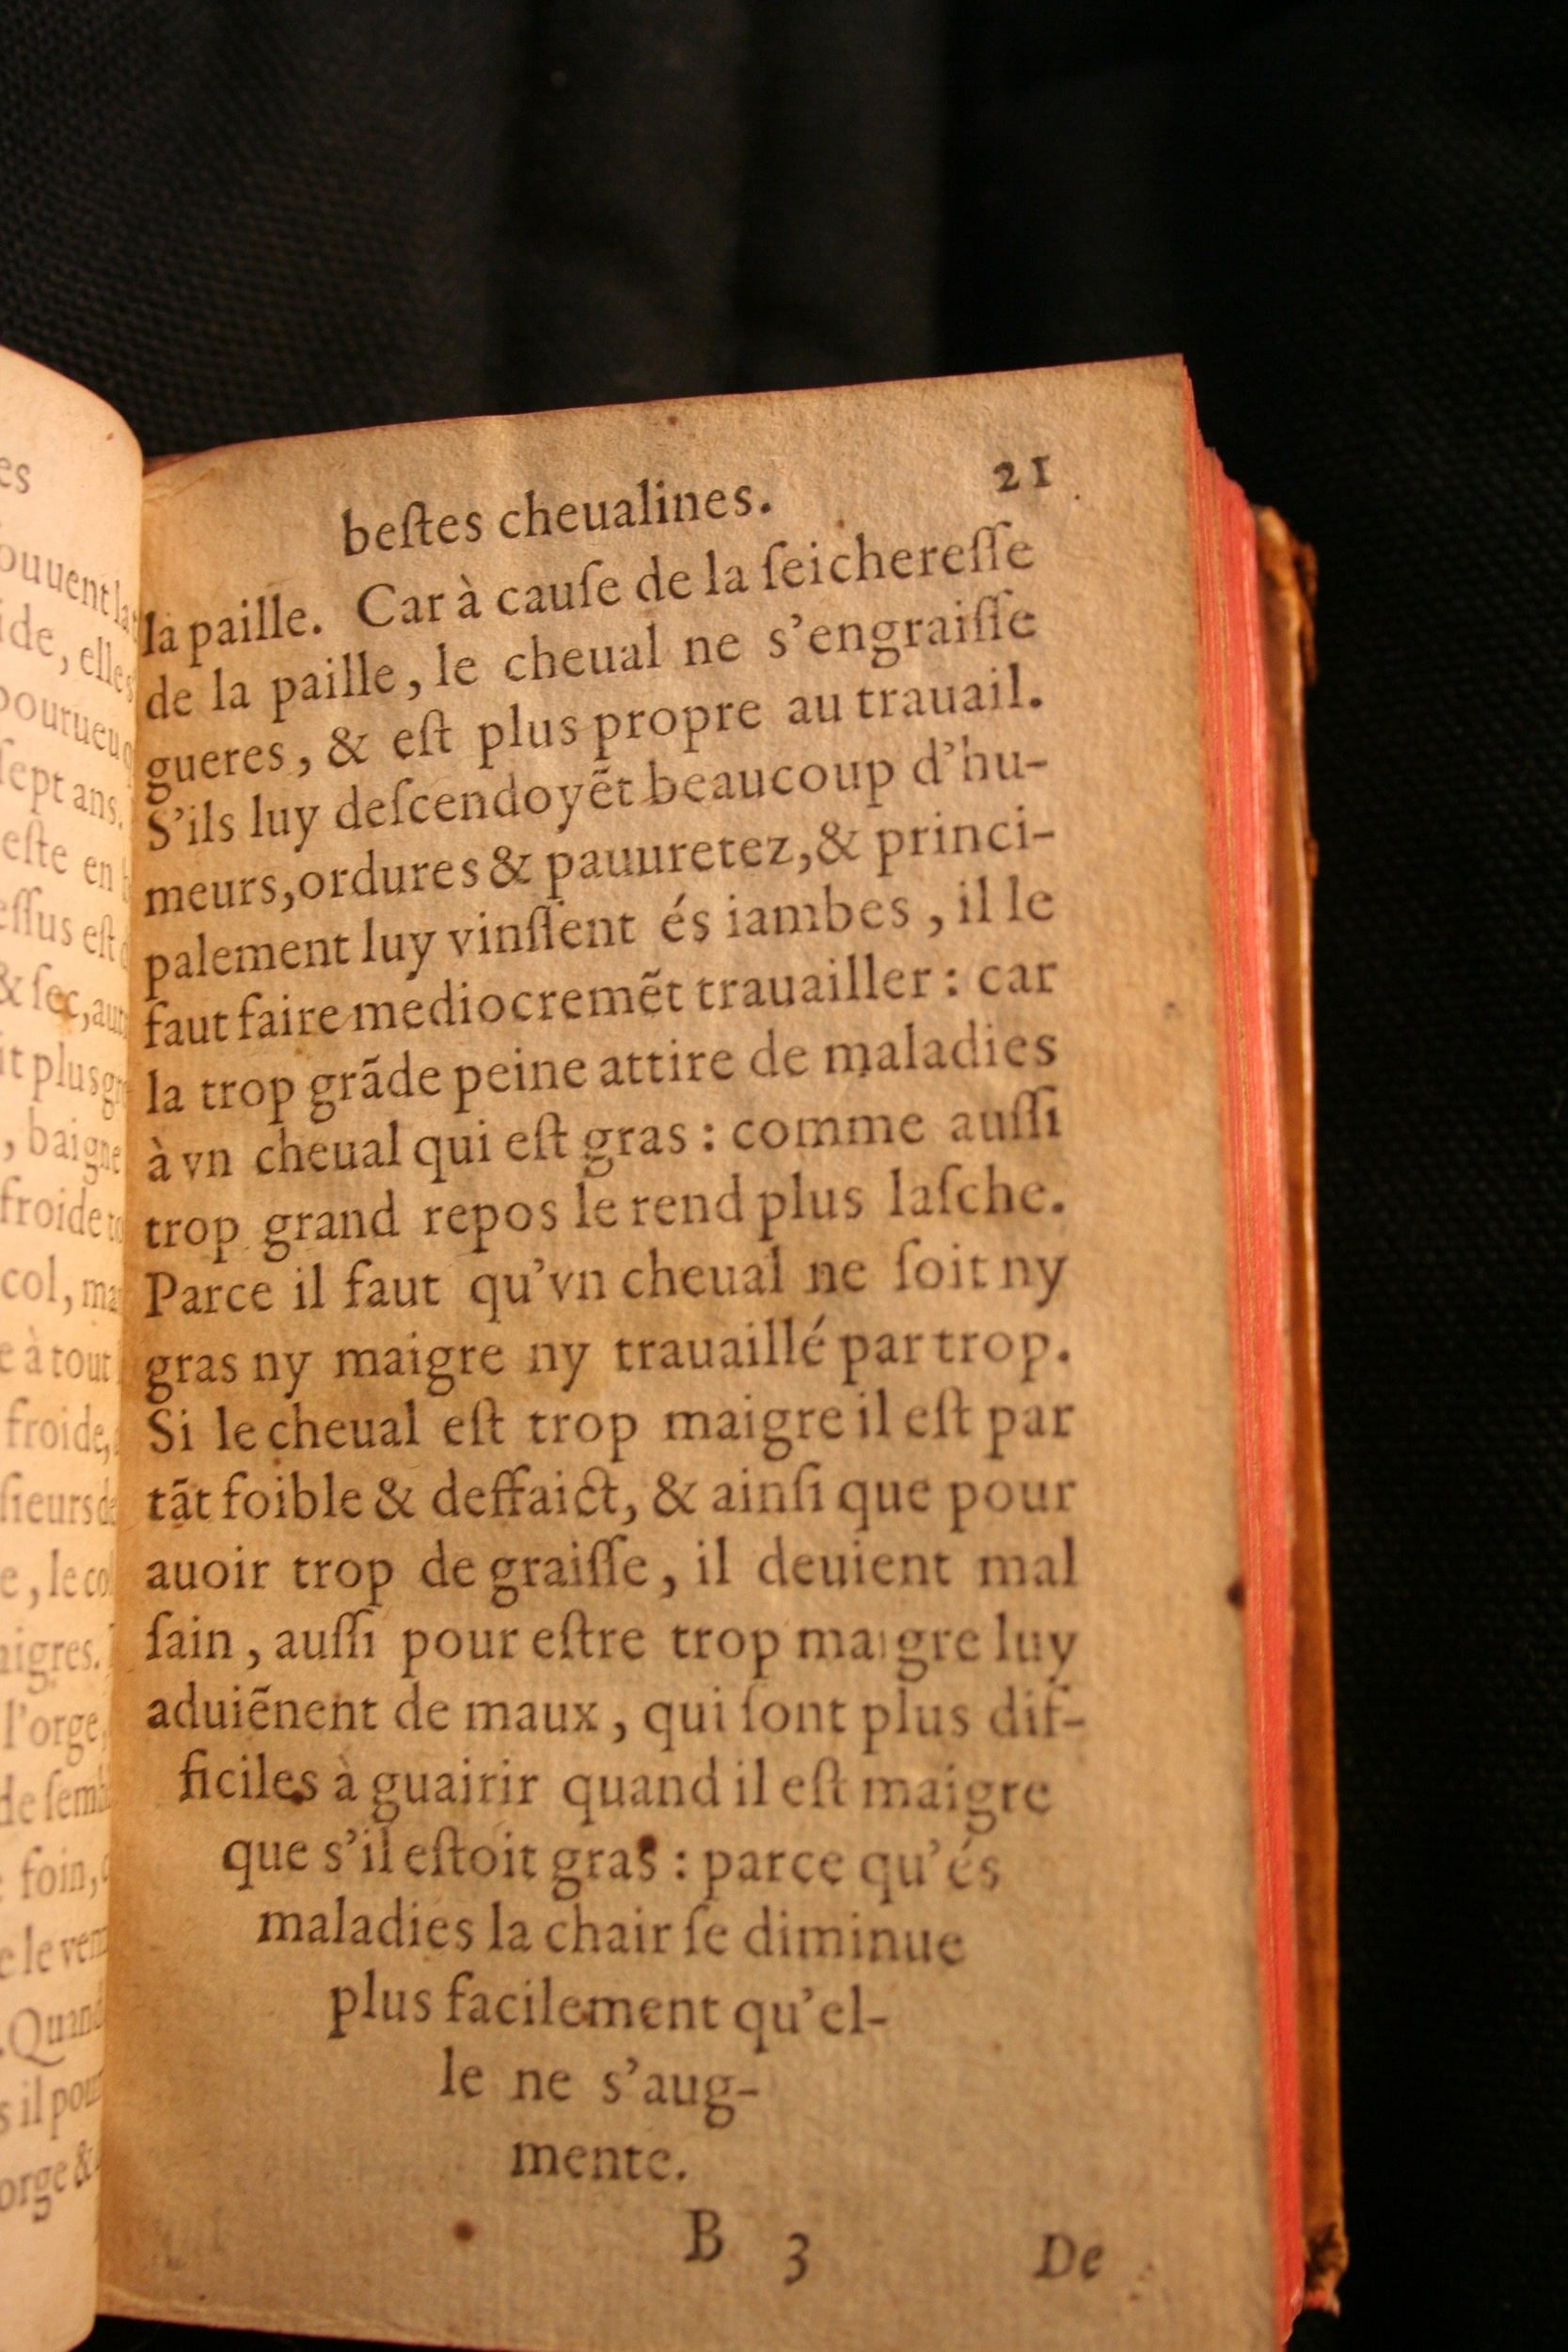 es
ouuent la
ide, elles
pourueu
sept ans.
este en
essus est
& sec, au
it plus gr
, baigne
froide
col, ma
e à tout
froide,
sieurs de
e, le col
aigres.
l'orge,
de semb
foin,
e le ven
. Quand
s il pour
orge &
beſtes cheualines. 21
la paille. Car à cauſe de la ſeichereſſe
de la paille, le cheual ne s'engraiſſe
gueres, & eſt plus propre au trauail.
S'ils luy deſcendoyẽt beaucoup d'hu-
meurs, ordures & pauuretez, & princi-
palement luy vinſſent és iambes, il le
faut faire mediocremẽt trauailler : car
la trop grãde peine attire de maladies
à vn cheual qui eſt gras : comme auſſi
trop grand repos le rend plus laſche.
Parce il faut qu'vn cheual ne ſoit ny
gras ny maigre ny trauaillé par trop.
Si le cheual eſt trop maigre il eſt par
tãt foible & deffaict, & ainſi que pour
auoir trop de graiſſe, il deuient mal
ſain, auſſi pour eſtre trop maigre luy
aduiẽnent de maux, qui ſont plus dif-
ficiles à guairir quand il eſt maigre
que s'il eſtoit gras : parce qu'és
maladies la chair ſe diminue
plus facilement qu'el-
le ne s'aug-
mente.
B 3 De